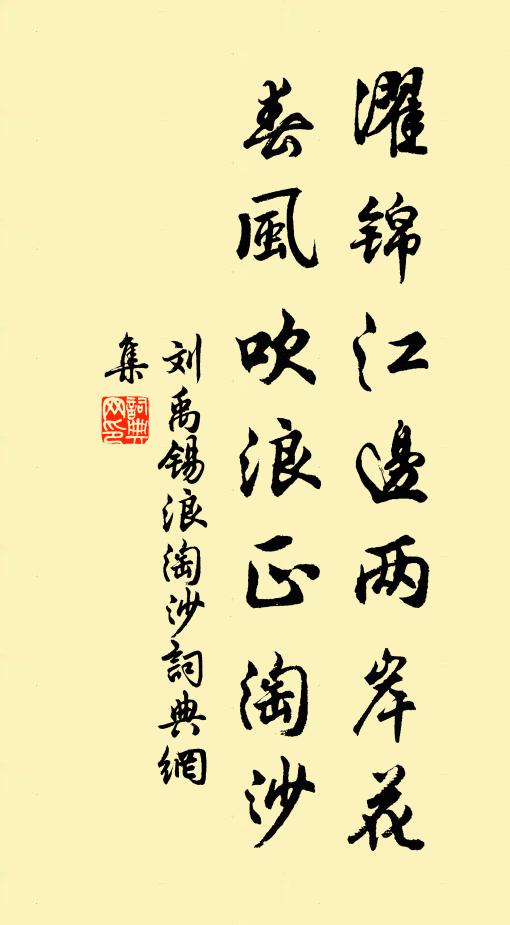 濯錦江邊两岸花
春風吹浪正淘沙
刘禹锡浪淘沙詞典網
集
詞典網印